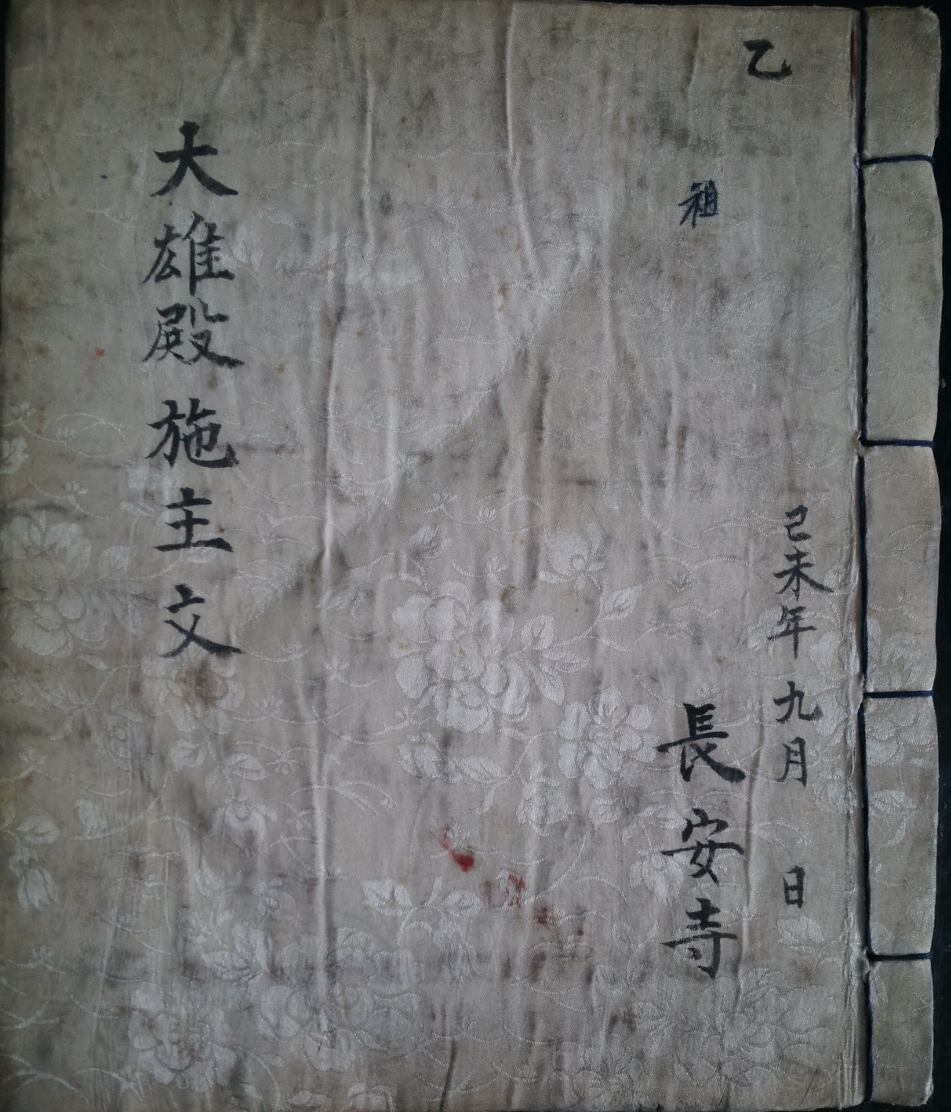 乙
祖
己未年 九月 日
長安寺
大雄殿施主文